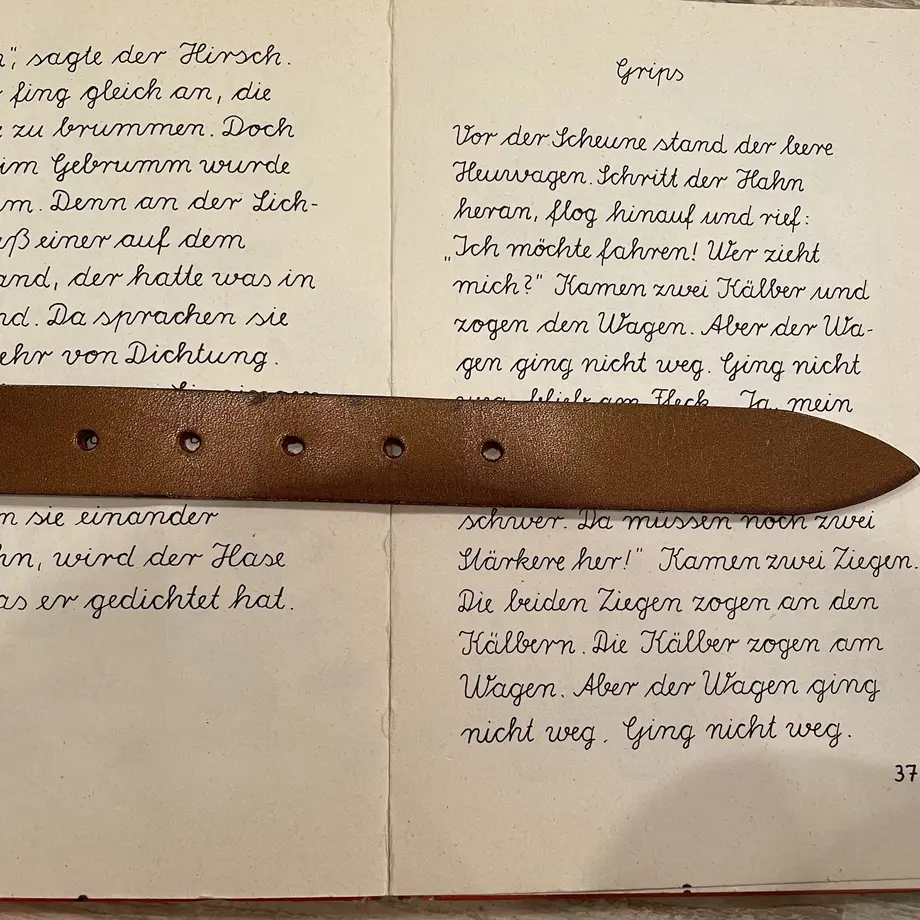 sagte der Hirsch.
fing gleich an, die
zu brummen. Doch
im Gebrumm wurde
Denn an der Lich-
einer auf dem
der hatte was in
Da sprachen sie
von Dichtung.
sie einander
wird der Hase
er gedichtet hat.
Grips
Vor der Scheune stand der leere
Heuwagen. Schritt der Hahn
heran, flog hinauf und rief:
„Ich möchte fahren! Wer zieht
mich?" Kamen zwei Kälber und
zogen den Wagen. Aber der Wa-
gen ging nicht weg. Ging nicht
weg, blieb am Fleck. Ja, mein
schwer. Da müssen noch zwei
Stärkere her!" Kamen zwei Ziegen.
Die beiden Ziegen zogen an den
Kälbern. Die Kälber zogen am
Wagen. Aber der Wagen ging
nicht weg. Ging nicht weg.
37